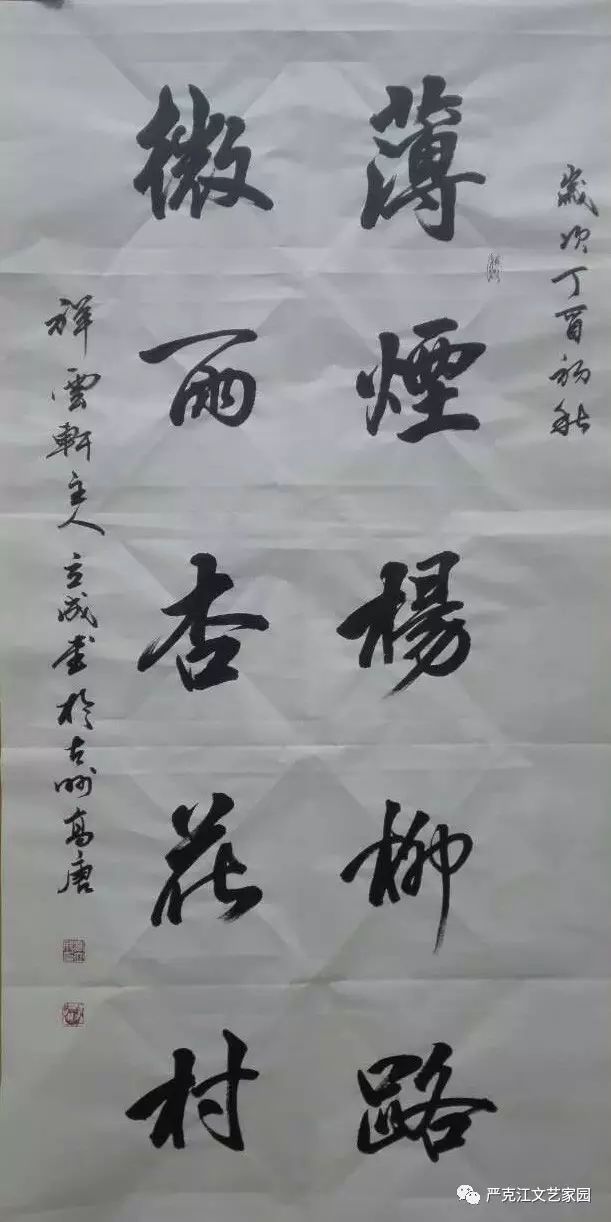 歲次丁酉初秋
薄煙楊柳路
微雨杏花村
祥雲軒主人立成書於古州高唐
严克江文艺家园